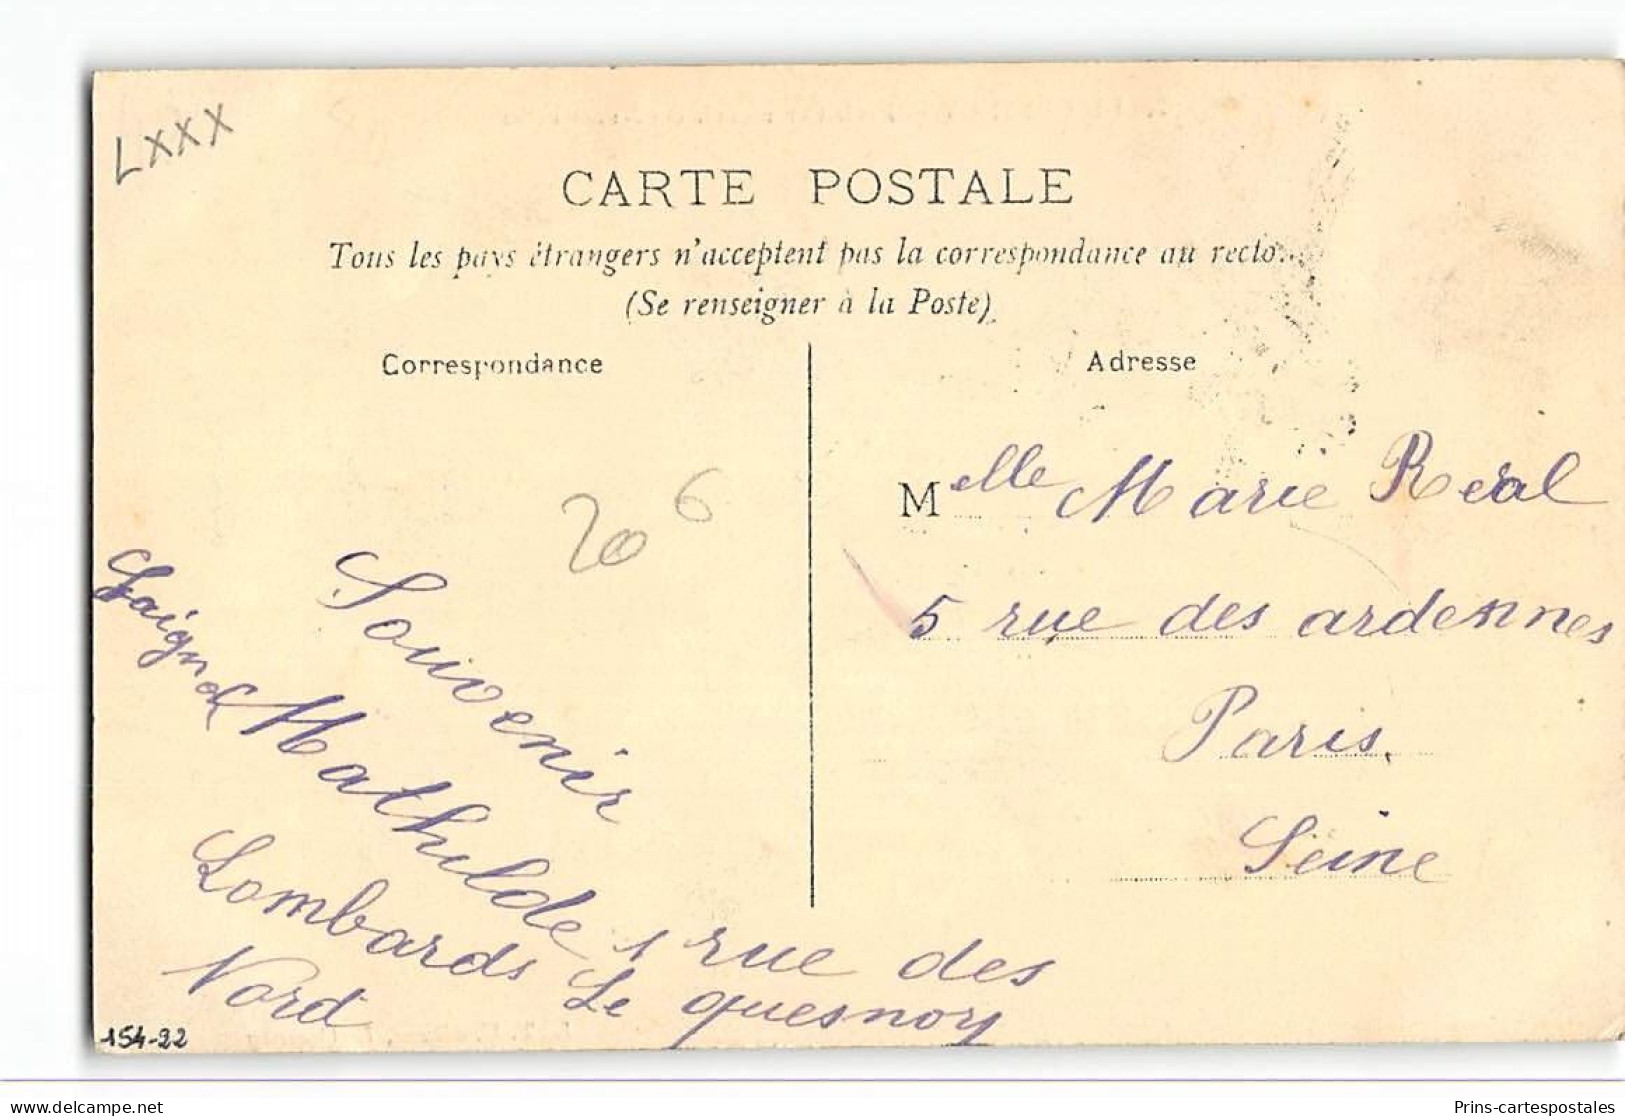 LXXX
CARTE POSTALE
Tous les pays étrangers n'acceptent pas la correspondance au recto.
(Se renseigner à la Poste)
Correspondance
Adresse
20 6
Melle Marie Réral
5 rue des ardennes
Paris
Seine
Souvenir
Mathilde 1 rue des
Lombards Le quesnoy
Nord
154-22
delcampe.net
Prins-cartespostales